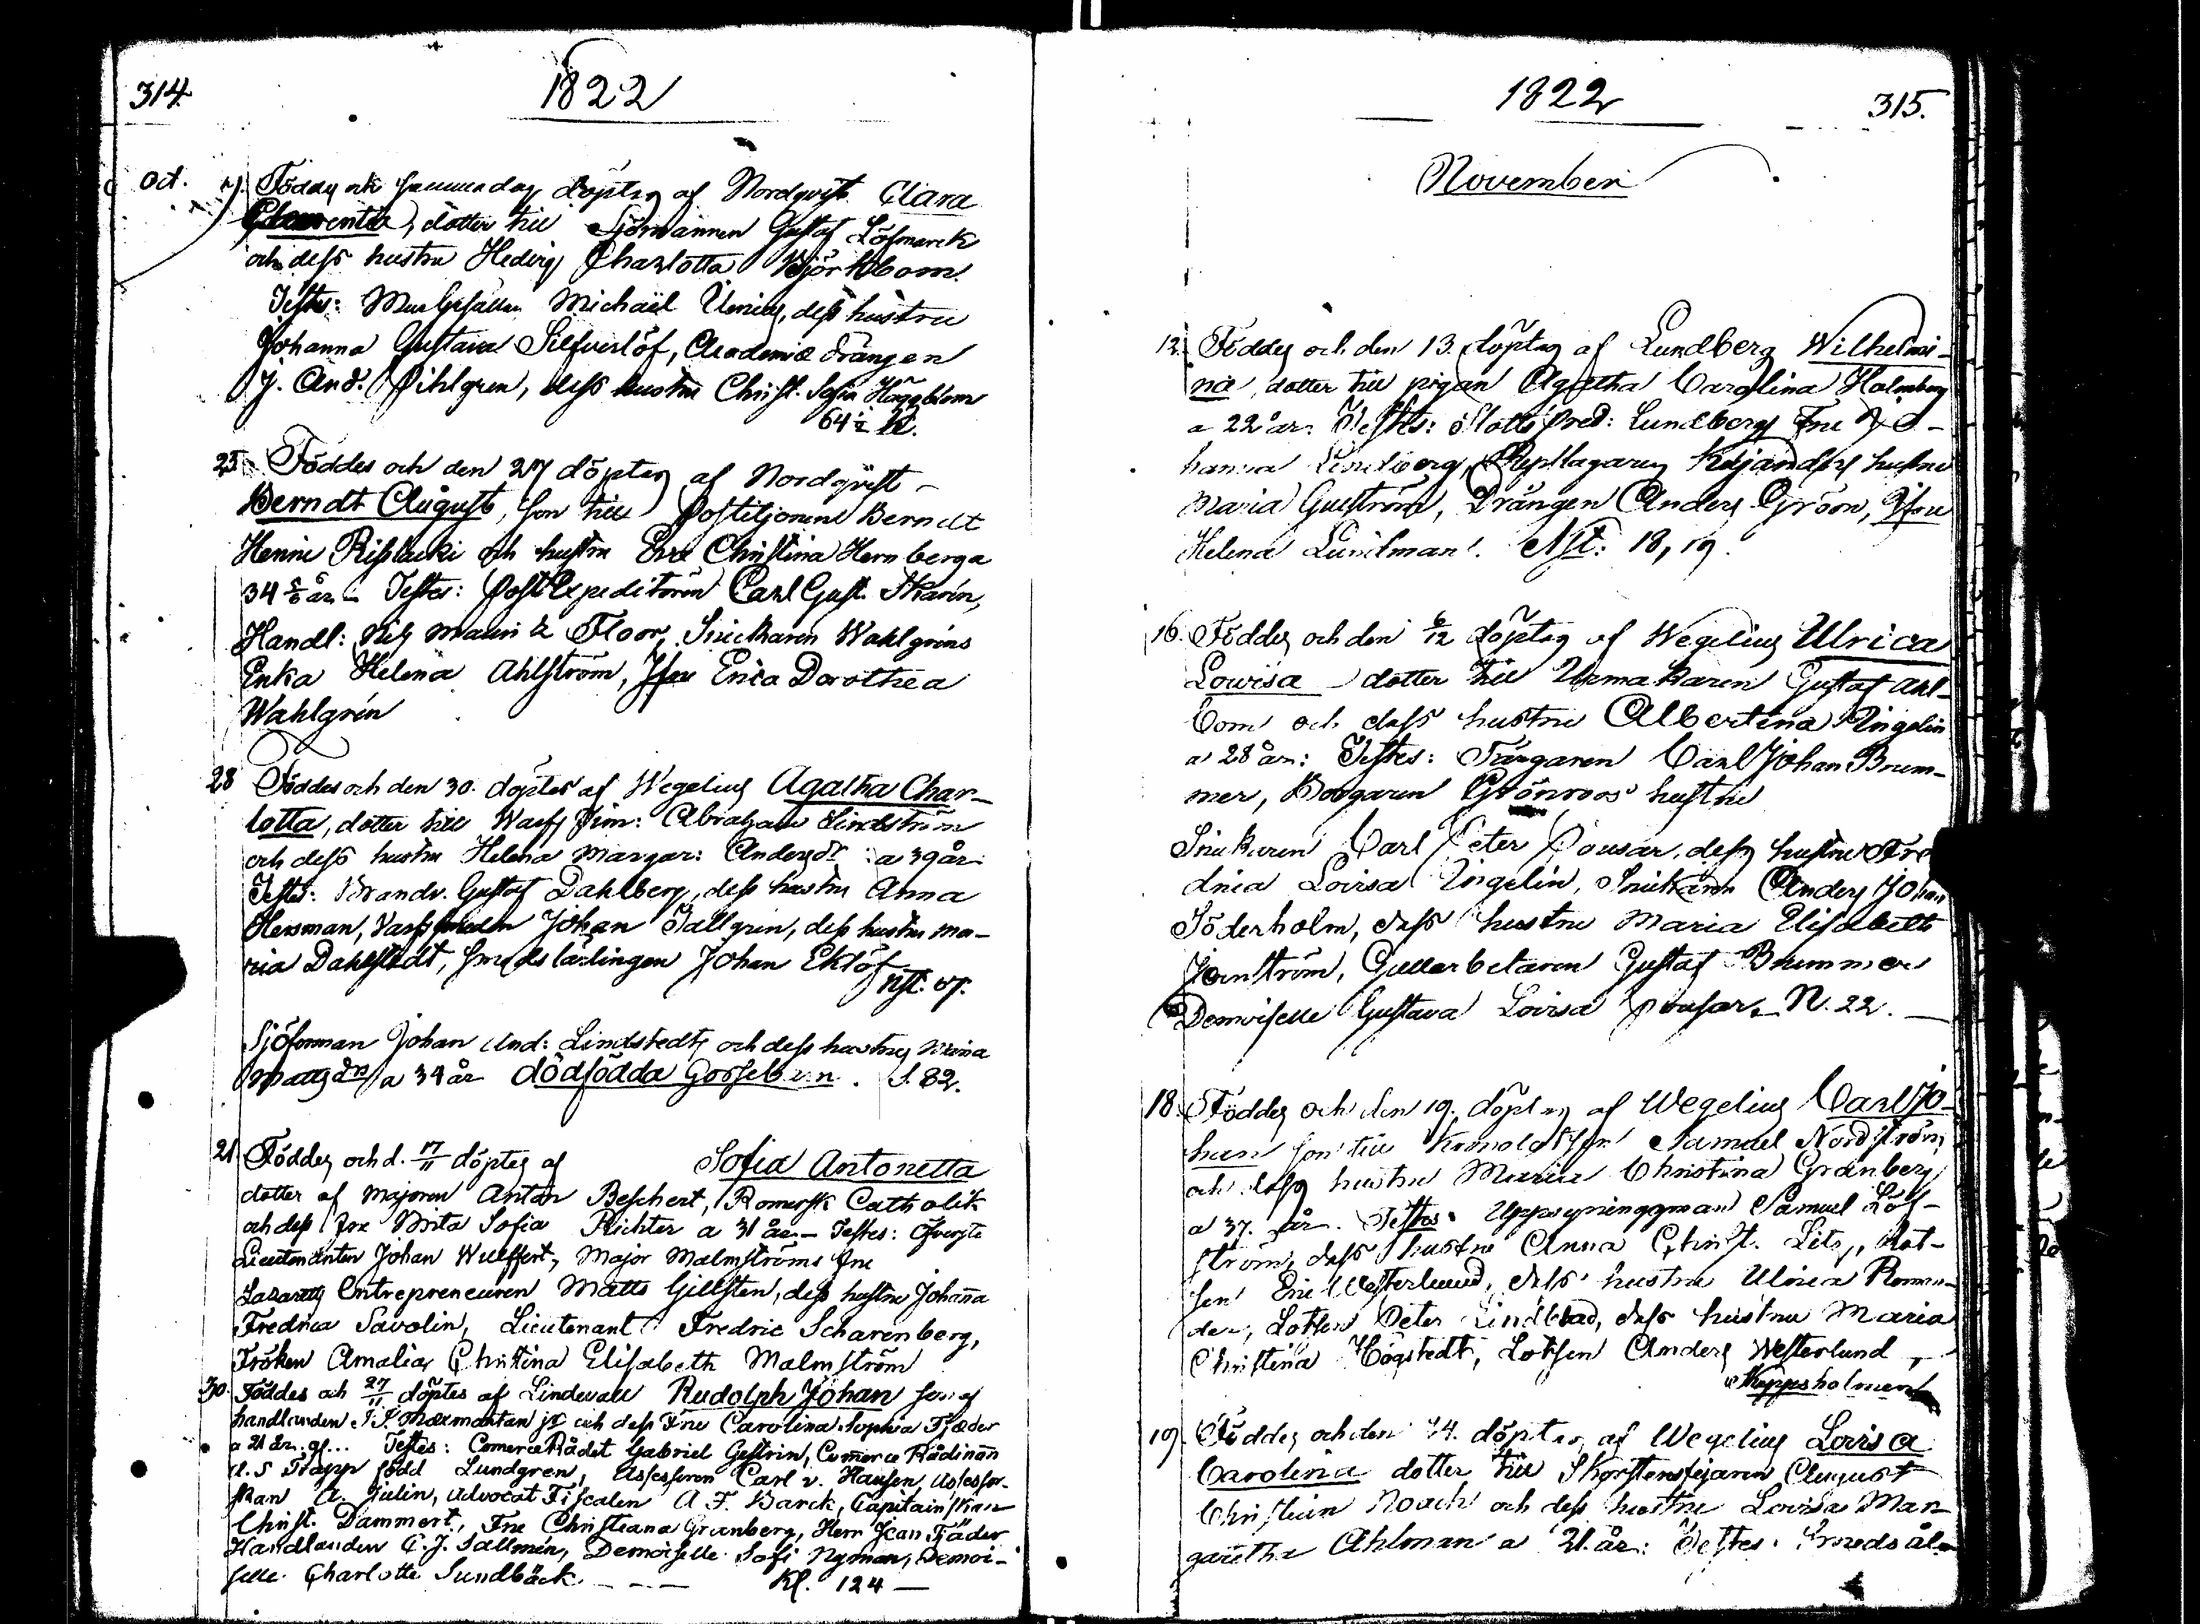 314.
1822
Oct. Föddes och samma dag döptes af Nordqvist Clara
dotter till Sjömannen Gustaf Löfmarck
och dess hustru Hedvig Charlotta Björkbom.
Testes: Michaël dess hustru
Johanna Gustava Silfverlöf, Academiæ drängen
J. And. Pihlgren, dess hustru Christ. Sofia Häggblom
64½ kl.
25 Föddes och den 27 döptes af Nordqvist
Berndt August, son till Postiljonen Berndt
Henric och hustru Eva Christina Hernberg a
34 år – Testes: PostExpeditoren Carl Gust.
Handl: Nils Floor, Snickaren Wahlgréns
Enka Helena Ahlström, Jfru Erica Dorothea
Wahlgrén
28 Föddes och den 30. döptes af Wegelius Agatha Char-
lotta, dotter till Abraham Lindström
och dess hustru Helena Margar: Andersdr a 39 år
Testes: Brandv. Gustaf Dahlberg, dess hustru Anna
Hersman, Johan Tallgren, dess hustru Ma-
ria Dahlstedt, smedslärlingen Johan Eklöf
Nst. 07.
Sjöman Johan And: Lindstedts och dess hustrus
Mattsdrs a 34 år dödfödda Gossebarn. S. 82.
21 Föddes och d. 17/11 döptes af Sofia Antonetta
dotter af Majoren Anton Beschert, Romersk Catholik
och dess Fru Brita Sofia Richter a 31 år – Testes: Öfverste
Lieutenanten Johan Wulffert, Major Malmströms Fru
Lazaretts Entrepreneuren Matts Gillsten, dess hustru Johanna
Fredrica Savolin, Lieutenant Fredric Scharenberg,
Fröken Amalia Christina Elisabeth Malmström
30. Föddes och 27/11 döptes af Lindevall Rudolph Johan son af
handlanden jr och dess Fru Carolina Sophia Fjæder
a 21 år. gl... Testes: CommerceRådet Gabriel Gestrin, Commerce Rådinnan
A. S Trapp född Lundgren, Assessoren Carl v. Hausen, Assessor-
skan A. Julin, Advocat Fiscalen A F. Barck, Capitainskan
Christ. Dammert, Fru Christeana Granberg, Herr Jean Fjäder
Handlanden C. J. Sallmén, Demoiselle Sofi Nyman, Demoi-
selle Charlotte Sundbäck – – – Kl. 124 –
1822
315.
November
12. Föddes och den 13. döptes af Lundberg Wilhelmi-
na, dotter till pigan Agatha Carolina Holmberg
a 22 år. Testes: Slotts Pred: Lundbergs Fru Jo-
hanna Lundberg, Repslagarens hustru
Maria Gulström, Drängen Anders Gröön, Jfru
Helena Lundman. Nst: 18, 19.
16. Föddes och den 6/12 döptes af Wegelius Ulrica
Lowisa – dotter till Urmakaren Gustaf Ahl-
bom och dess hustru Albertina Ingelin
a 28 år: Testes: Färgaren Carl Johan Brum-
mer, Borgaren Grönroos hustru
Snickaren Carl Peter Pousar, dess hustru Fre
drica Lovisa Ingelin, Snickaren Anders Johan
Söderholm, dess hustru Maria Elisabeth
Jernström, Gullarbetaren Gustaf Brummer
Demoiselle Gustava Lovisa Pousar. – N. 22. –
18. Föddes och den 19. döptes af Wegelius Carl Jo-
han son till Samuel Nordström
och dess hustru Maria Christina Granberg
a 37. år. Testes: Uppsyningsman Samuel Löf-
ström, dess hustru Anna Christ. Lots-
sen Eric Westerlund, dess hustru Ulrica
Lotsen Peter Lindblad, dess hustru Maria
Christina Högstedt, Lotsen Anders Westerlund
19. Föddes och den 24. döptes af Wegelius Lovisa
Carolina dotter till Skorstensfejaren August
Christian Noach och dess hustru Lovisa Mar
garetha Ahlman a 21. år: Testes: Smedsål-